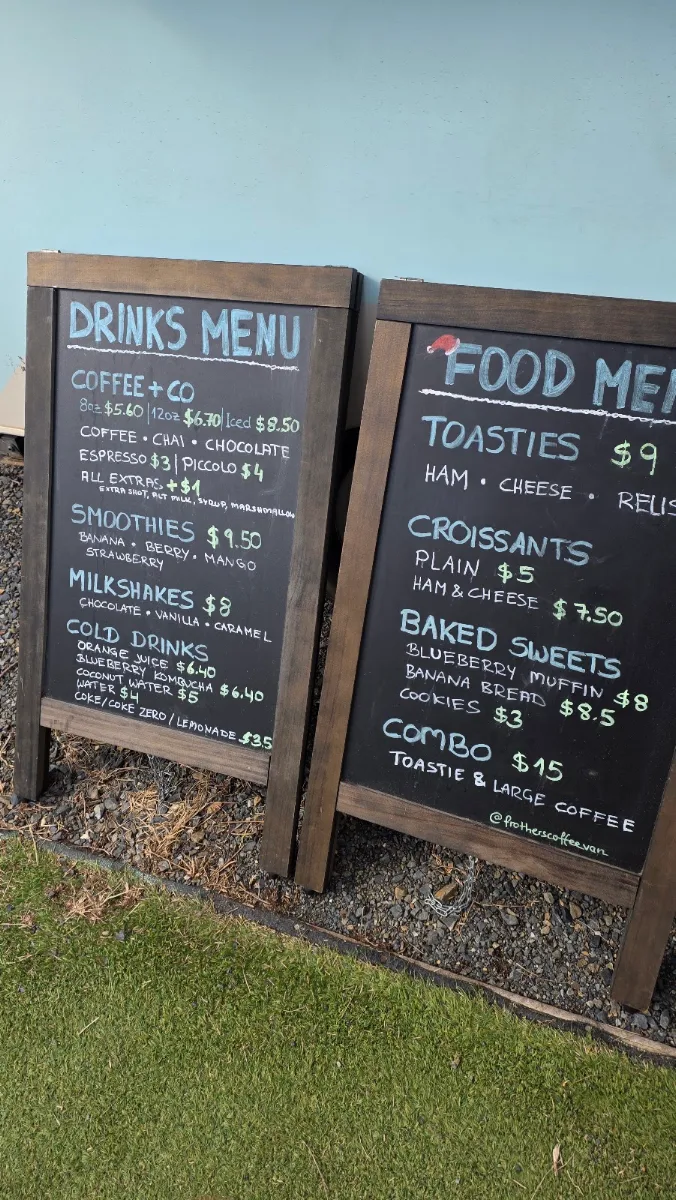 DRINKS MENU
COFFEE + CO
8oz $5.60 | 12oz $6.70 | Iced $8.50
COFFEE • CHAI • CHOCOLATE
ESPRESSO $3 | PICCOLO $4
ALL EXTRAS +$1
EXTRA SHOT, ALT MILK, SYRUP, MARSHMALLOW
SMOOTHIES $9.50
BANANA • BERRY • MANGO
STRAWBERRY
MILKSHAKES $8
CHOCOLATE • VANILLA • CARAMEL
COLD DRINKS
ORANGE JUICE $6.40
BLUEBERRY KOMBUCHA $6.40
COCONUT WATER $5
WATER $4
COKE/COKE ZERO/LEMONADE $3.5
FOOD MEN
TOASTIES $9
HAM • CHEESE • RELIS
CROISSANTS
PLAIN $5
HAM & CHEESE $7.50
BAKED SWEETS
BLUEBERRY MUFFIN $8
BANANA BREAD $8.5
COOKIES $3
COMBO $15
TOASTIE & LARGE COFFEE
@frotherscoffeevan